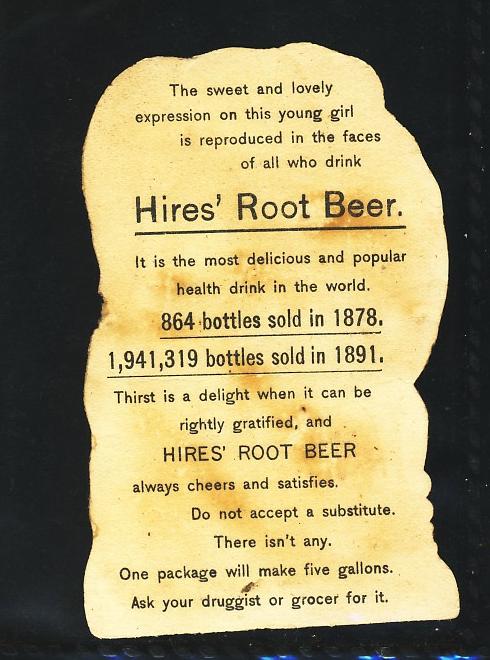 The sweet and lovely
expression on this young girl
is reproduced in the faces
of all who drink
Hires' Root Beer.
It is the most delicious and popular
health drink in the world.
864 bottles sold in 1878.
1,941,319 bottles sold in 1891.
Thirst is a delight when it can be
rightly gratified, and
HIRES' ROOT BEER
always cheers and satisfies.
Do not accept a substitute.
There isn't any.
One package will make five gallons.
Ask your druggist or grocer for it.